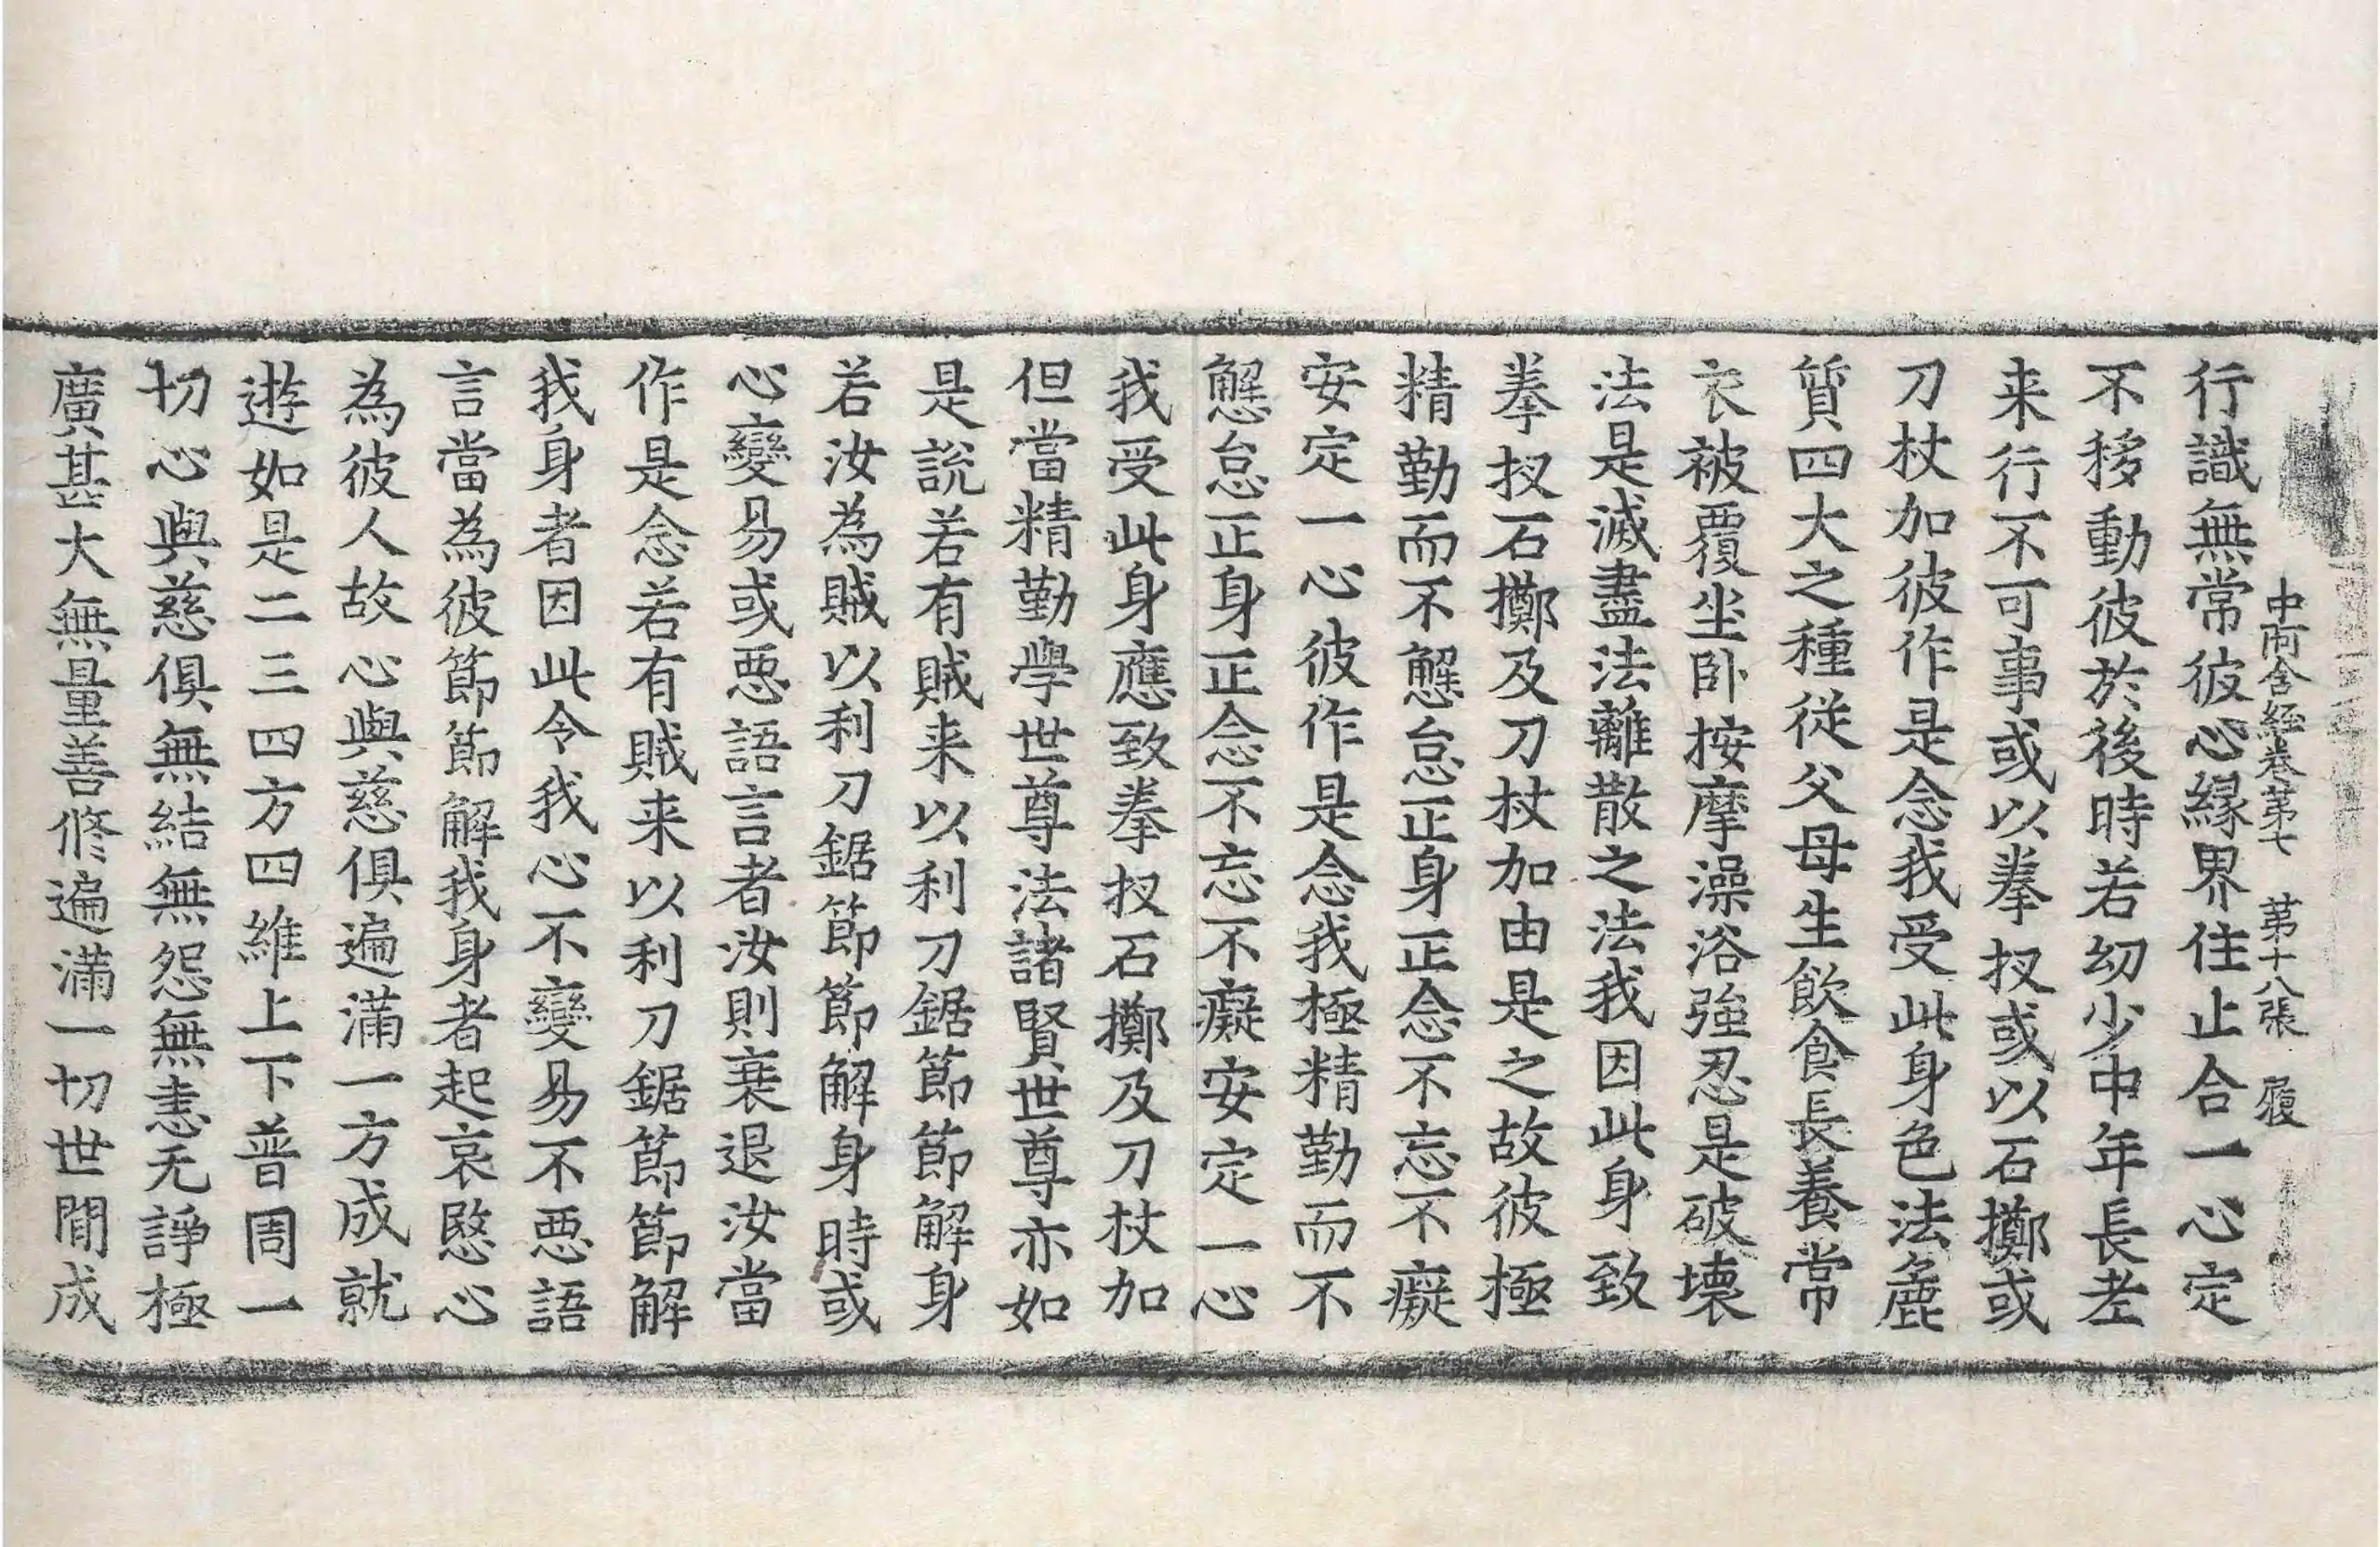 中阿含經卷第七　第十八張　履
行識無常彼心緣界住止合一心定
不移動彼於後時若幼少中年長老
来行不可事或以拳扠或以石擲或
刀杖加彼作是念我受此身色法麁
質四大之種從父母生飲食長養常
衣被覆坐卧按摩澡浴強忍是破壞
法是滅盡法離散之法我因此身致
拳扠石擲及刀杖加由是之故彼極
精勤而不懈怠正身正念不忘不癡
安定一心彼作是念我極精勤而不
懈怠正身正念不忘不癡安定一心
我受此身應致拳扠石擲及刀杖加
但當精勤學世尊法諸賢世尊亦如
是說若有賊来以利刀鋸節節解身
若汝為賊以利刀鋸節節解身時或
心變易或惡語言者汝則衰退汝當
作是念若有賊来以利刀鋸節節解
我身者因此令我心不變易不惡語
言當為彼節節解我身者起哀愍心
為彼人故心與慈俱遍滿一方成就
遊如是二三四方四維上下普周一
切心與慈俱無結無怨無恚无諍極
廣甚大無量善修遍滿一切世間成